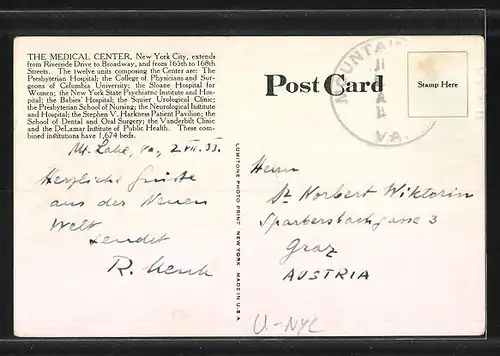 THE MEDICAL CENTER, New York City, extends
from Riverside Drive to Broadway, and from 165th to 168th
Streets. The twelve units composing the Center are: The
Presbyterian Hospital; the College of Physicians and Sur-
geons of Columbia University; the Sloane Hospital for
Women; the New York State Psychiatric Institute and Hos-
pital; the Babies' Hospital; the Squier Urological Clinic;
the Presbyterian School of Nursing; the Neurological Institute
and Hospital; the Stephen V. Harkness Patient Pavilion; the
School of Dental and Oral Surgery; the Vanderbilt Clinic
and the DeLamar Institute of Public Health. These com-
bined institutions have 1,674 beds.
Mt. Lake, Va., 2 VII. 33.
Herzliche Grüße
aus der Neuen
Welt
sendet
R.
LUMITONE PHOTO PRINT NEW YORK MADE IN U.S.A.
Post Card
MOUNTAI
VA.
Stamp Here
Herrn
Dr Norbert Wiktorin
Sparbersbachgasse 3
Graz
AUSTRIA
U.-NYC